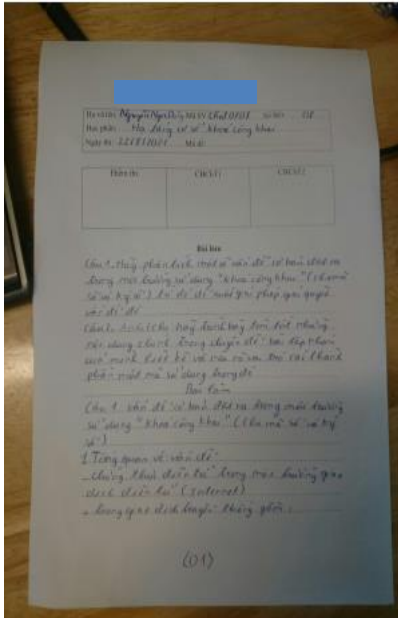 Họ và tên: Nguyễn Ngọc Mã SV: Số BD: 08
Học phần: Hạ tầng cơ sở khoá công khai
Ngày thi:
Điểm thi CBChT1 CBChT2
Bài làm
Câu 1. Hãy phân tích một số vấn đề cơ bản đặt ra
trong môi trường sử dụng "khoá công khai" (Chữ mã
số và ký số) từ đó đề xuất giải pháp giải quyết
vấn đề đó
Câu 2. hãy trình bày tóm tắt những
nội dung chính trong chuyên đề bài tập nhóm
mình thiết kế và nêu rõ vai trò các thành
phần mật mã sử dụng trong đó
Bài làm
Câu 1. vấn đề cơ bản đặt ra trong môi trường
sử dụng "khoá công khai" (Chữ mã số và ký
số)
1. Tổng quan về vấn đề:
- chứng thực điện tử trong môi trường giao
dịch điện tử (Internet)
- trong giao dịch truyền thống gồm:
(01)